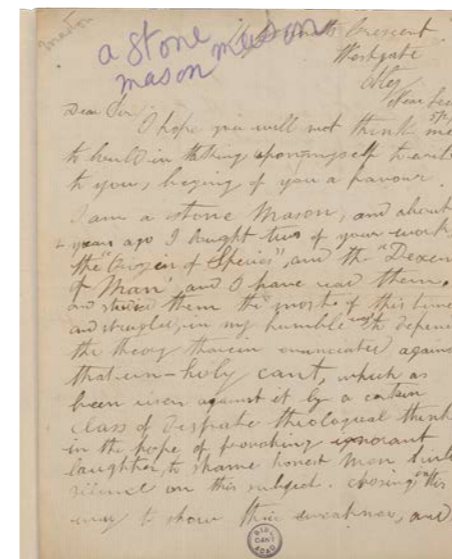 a stone
mason
Crescent
Westgate
Dear Sir
I hope you will not think me
to bould in taking upon myself to write
to you, beging of you a favour.
I am a stone Mason, and about
years ago I bought two of your works
the "Origin of Species", and the "Decen
of Man" and I have read them,
and studied them the most of this time
and strugles, in my humble way to defend
the theory thairin enunciated against
that un-holy cant, which as
been risen against it by a certain
class of theological think
in the hope of provoking ignorant
laughter, to shame honest men
silence on this subject. chosing this
way to show their weakness, and